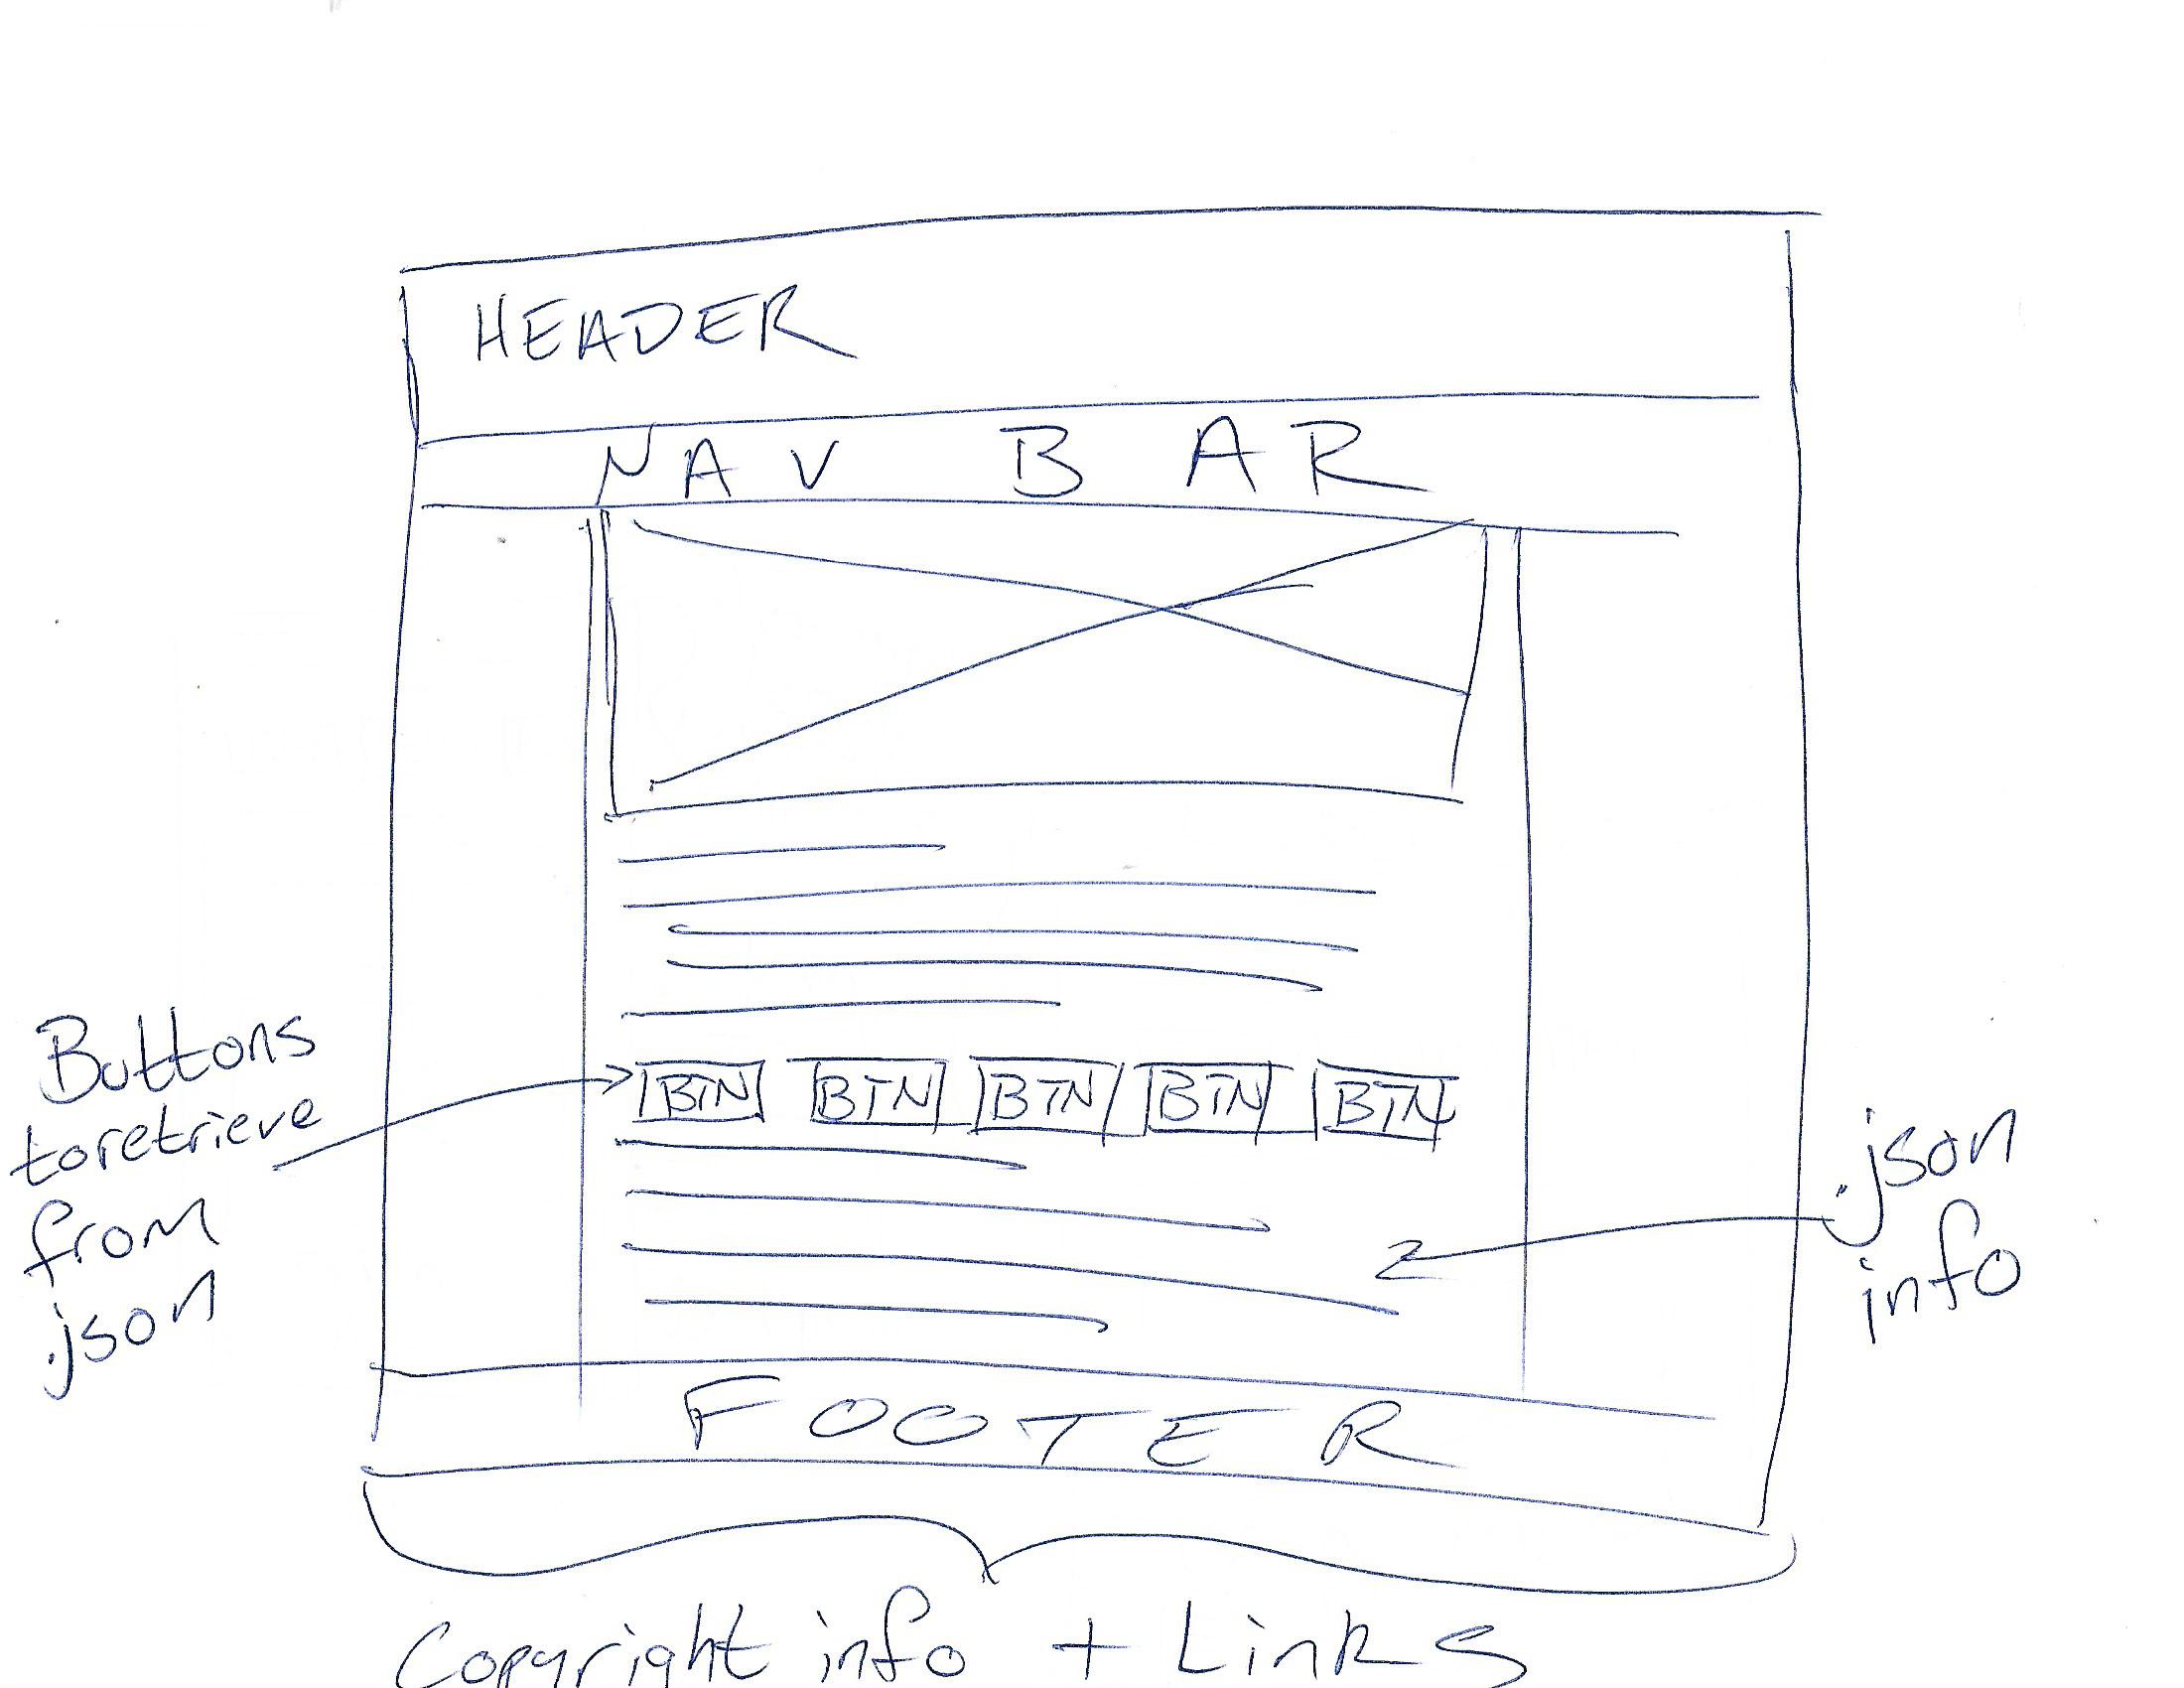 HEADER
NAV BAR
Buttons
toretrieve
from
.json
BTN BTN BTN BTN BTN
.json
info
FOOTER
Copyright info + Links